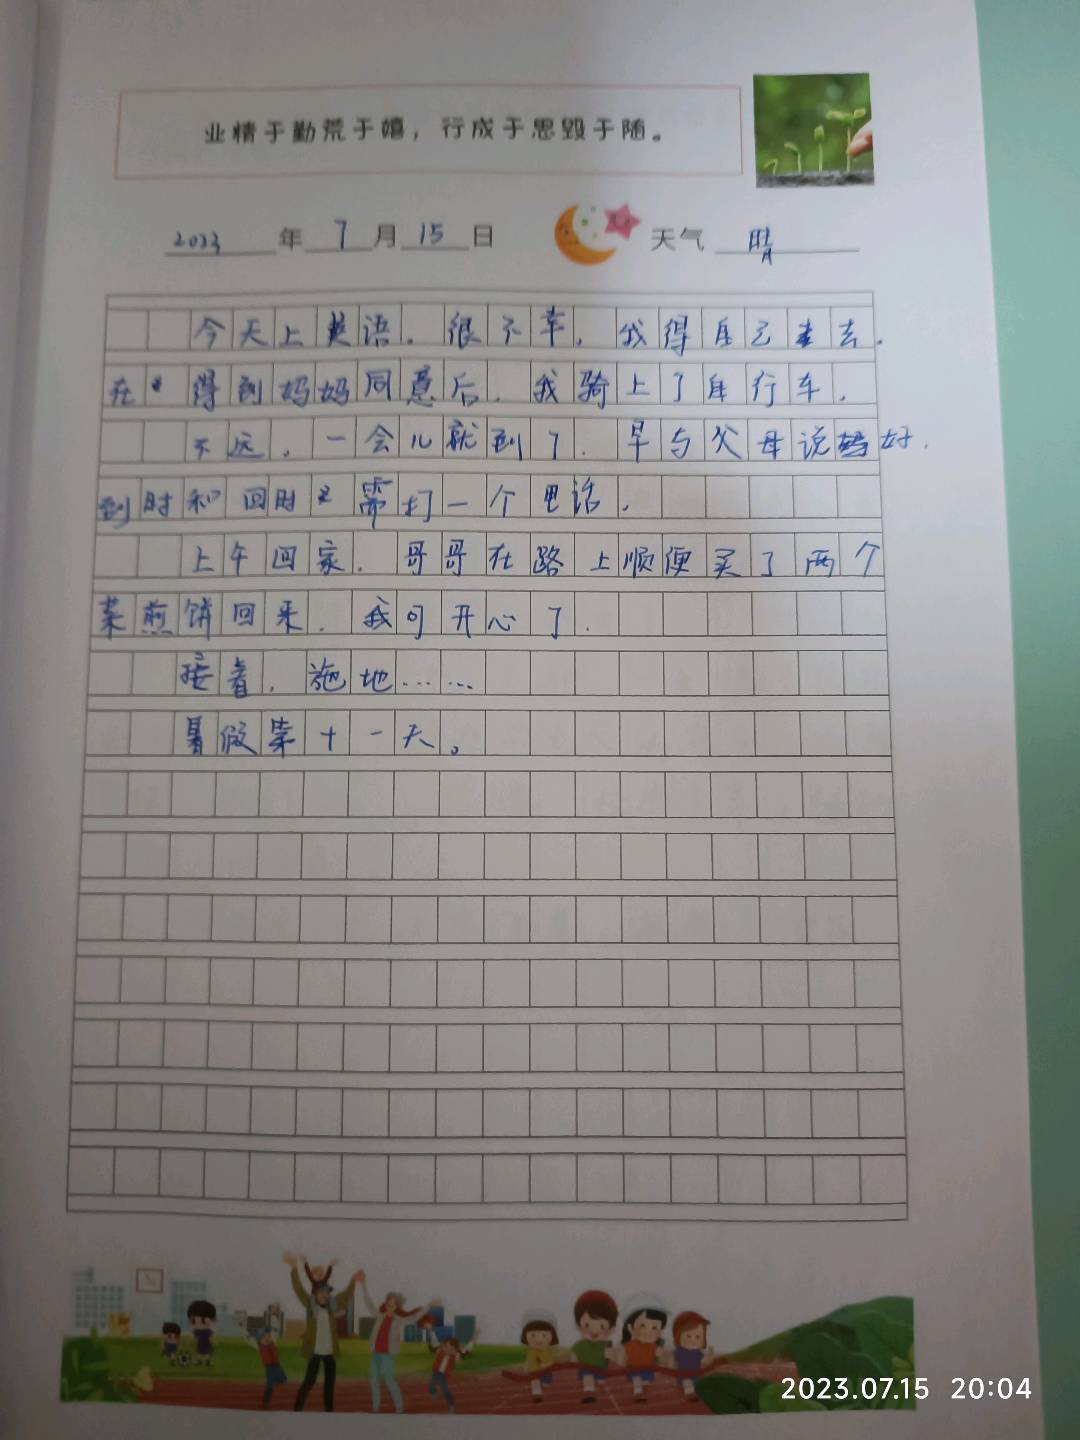 业精于勤荒于嬉，行成于思毁于随。
2023年7月15日 天气 晴
今天上英语．很不幸，我得自己去．
在得到妈妈同意后．我骑上了自行车．
不远。一会儿就到了．早与父母说好．
到时和回时需打一个电话．
上午回家．哥哥在路上顺便买了两个
菜煎饼回来．我可开心了．
接着，拖地……
暑假第十一天。
2023.07.15 20:04